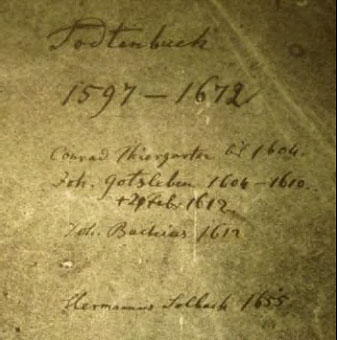 Todtenbuch
1597 — 1672
Conrad Thiergarter bis 1604.
Joh. Gotsleben 1604 — 1610.
+ 24 Feb. 1612.
Joh. Bachias 1612
Hermannus Solbach 1655